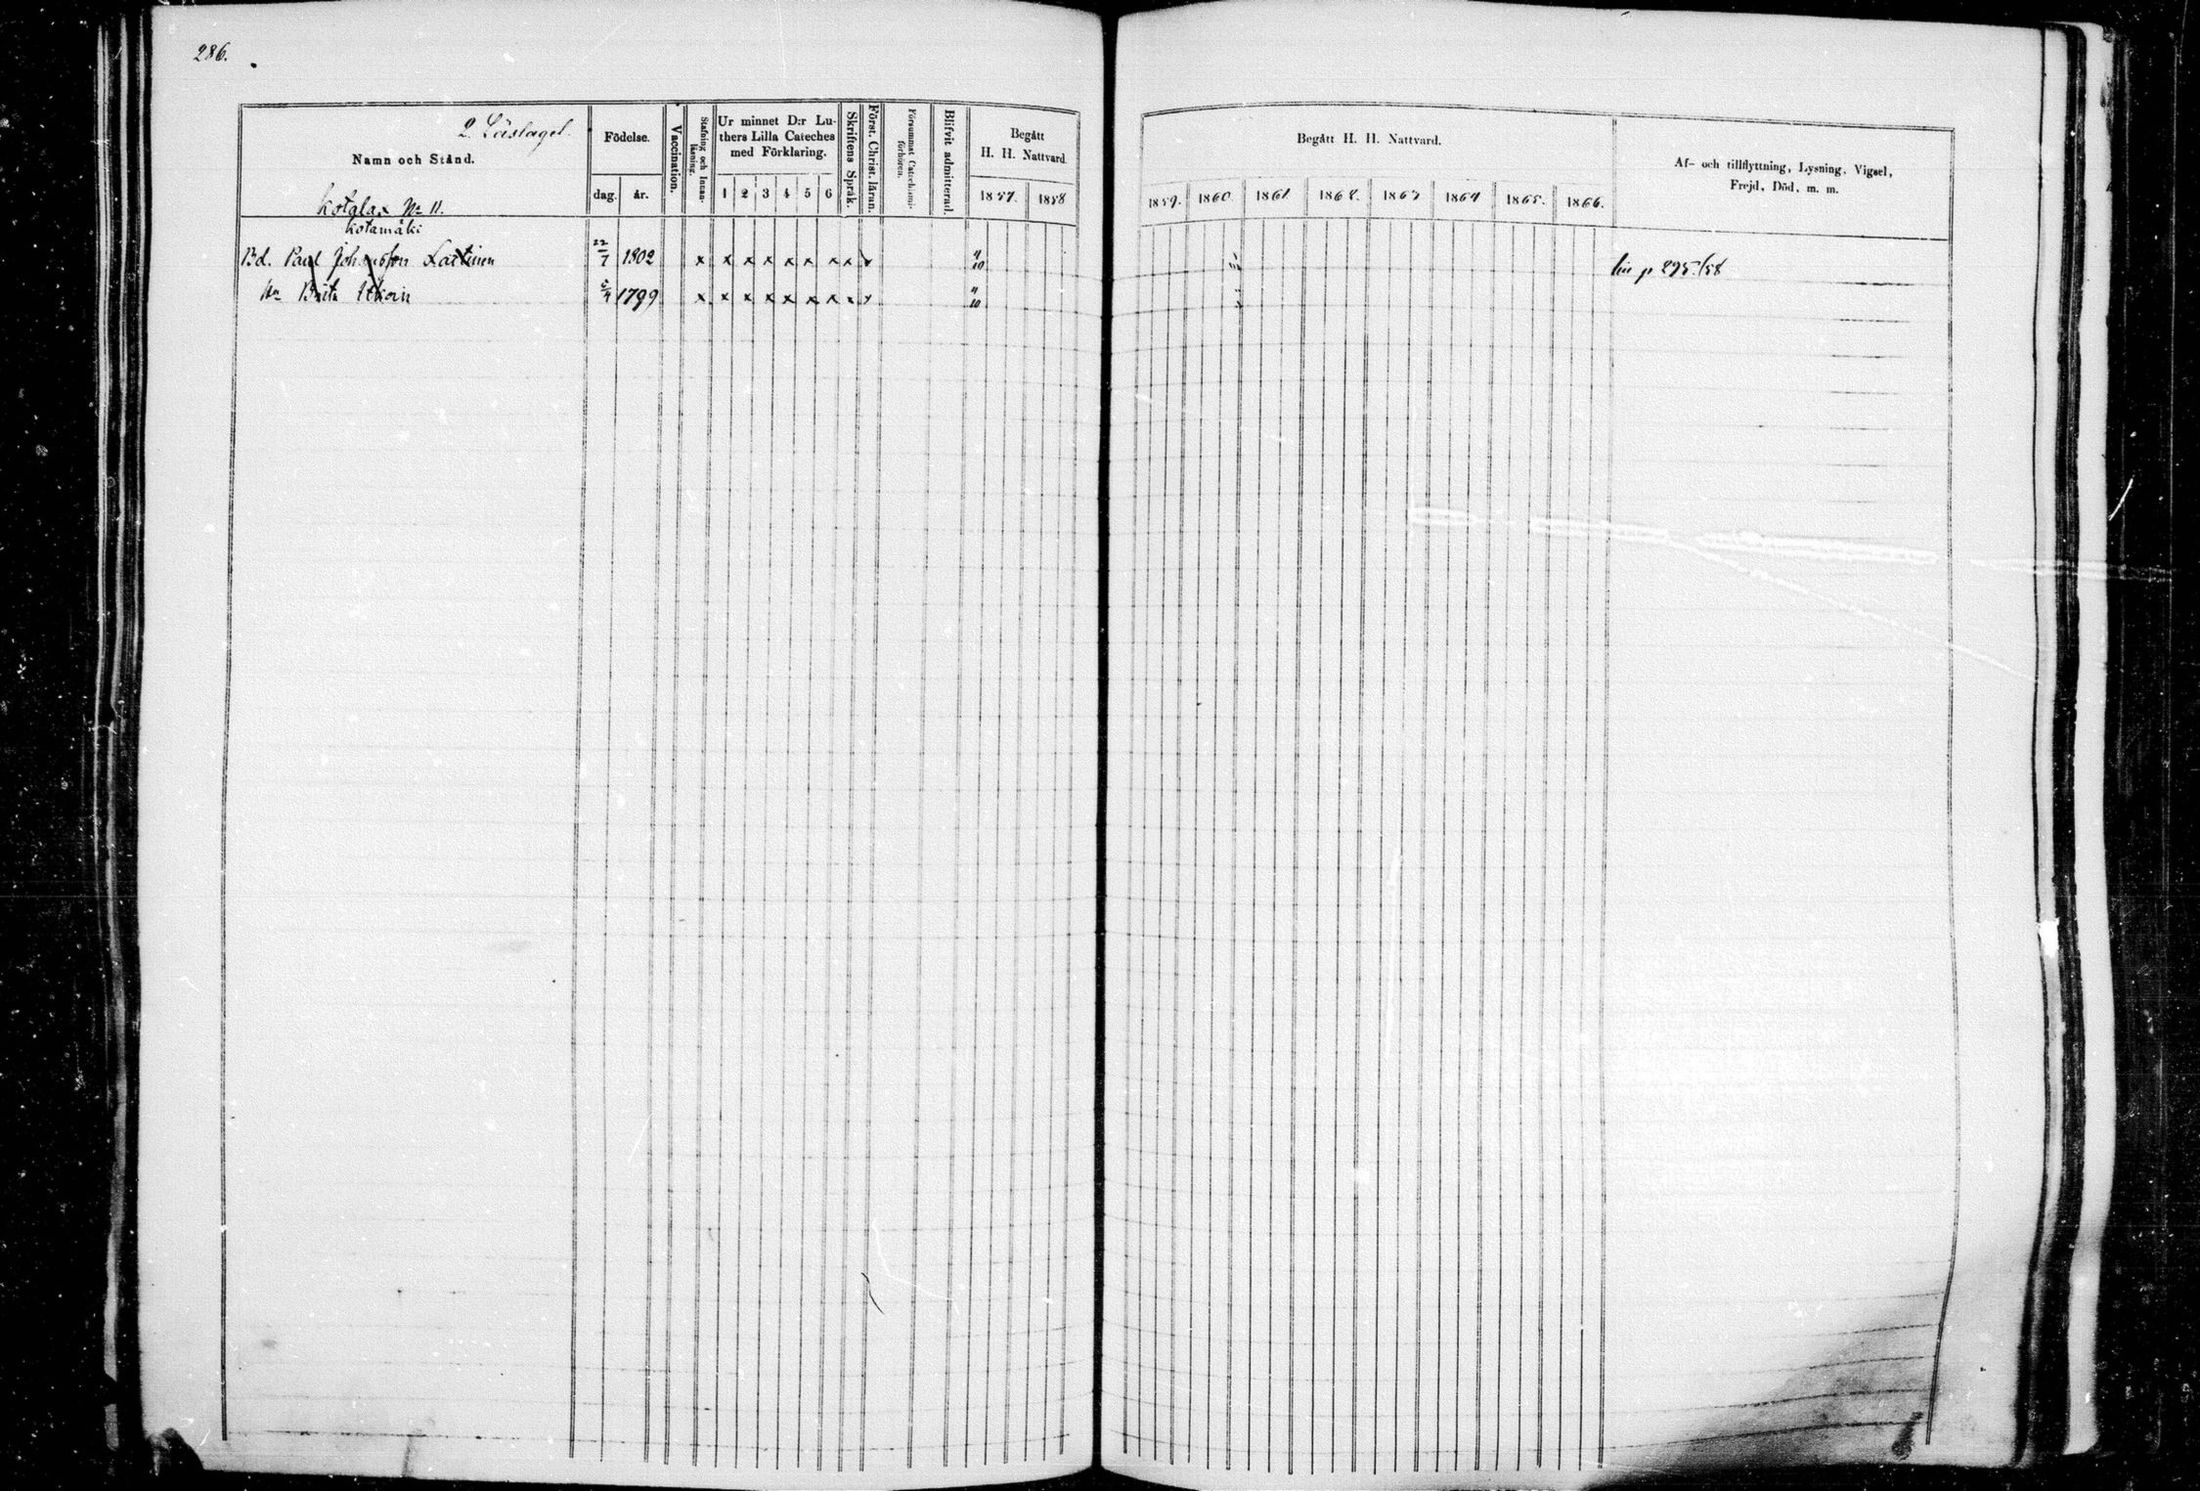 286.
2. Läslaget
Namn och Stånd.
Kotalax No 11.
Kotamäki
Födelse.
dag. år.
Vaccination.
Stafning och Innanläsning.
Ur minnet D:r Luthers Lilla Cateches med Förklaring.
1 2 3 4 5 6
Skriftens Språk.
Först. Christ. läran.
Försummat Catechismiförhören.
Blifvit admitterad.
Begått
H. H. Nattvard.
1857. 1858
Begått H. H. Nattvard.
1859. 1860. 1861. 1862. 1863 1864 1865. 1866.
Af- och tillflyttning, Lysning, Vigsel,
Frejd, Död, m. m.
Bd. Paul Johansson Laitinen 22/7 1802 x x x x x x x x x 4/10
p 295./58
Hu Brita 1799 x x x x x x x x x 4/10